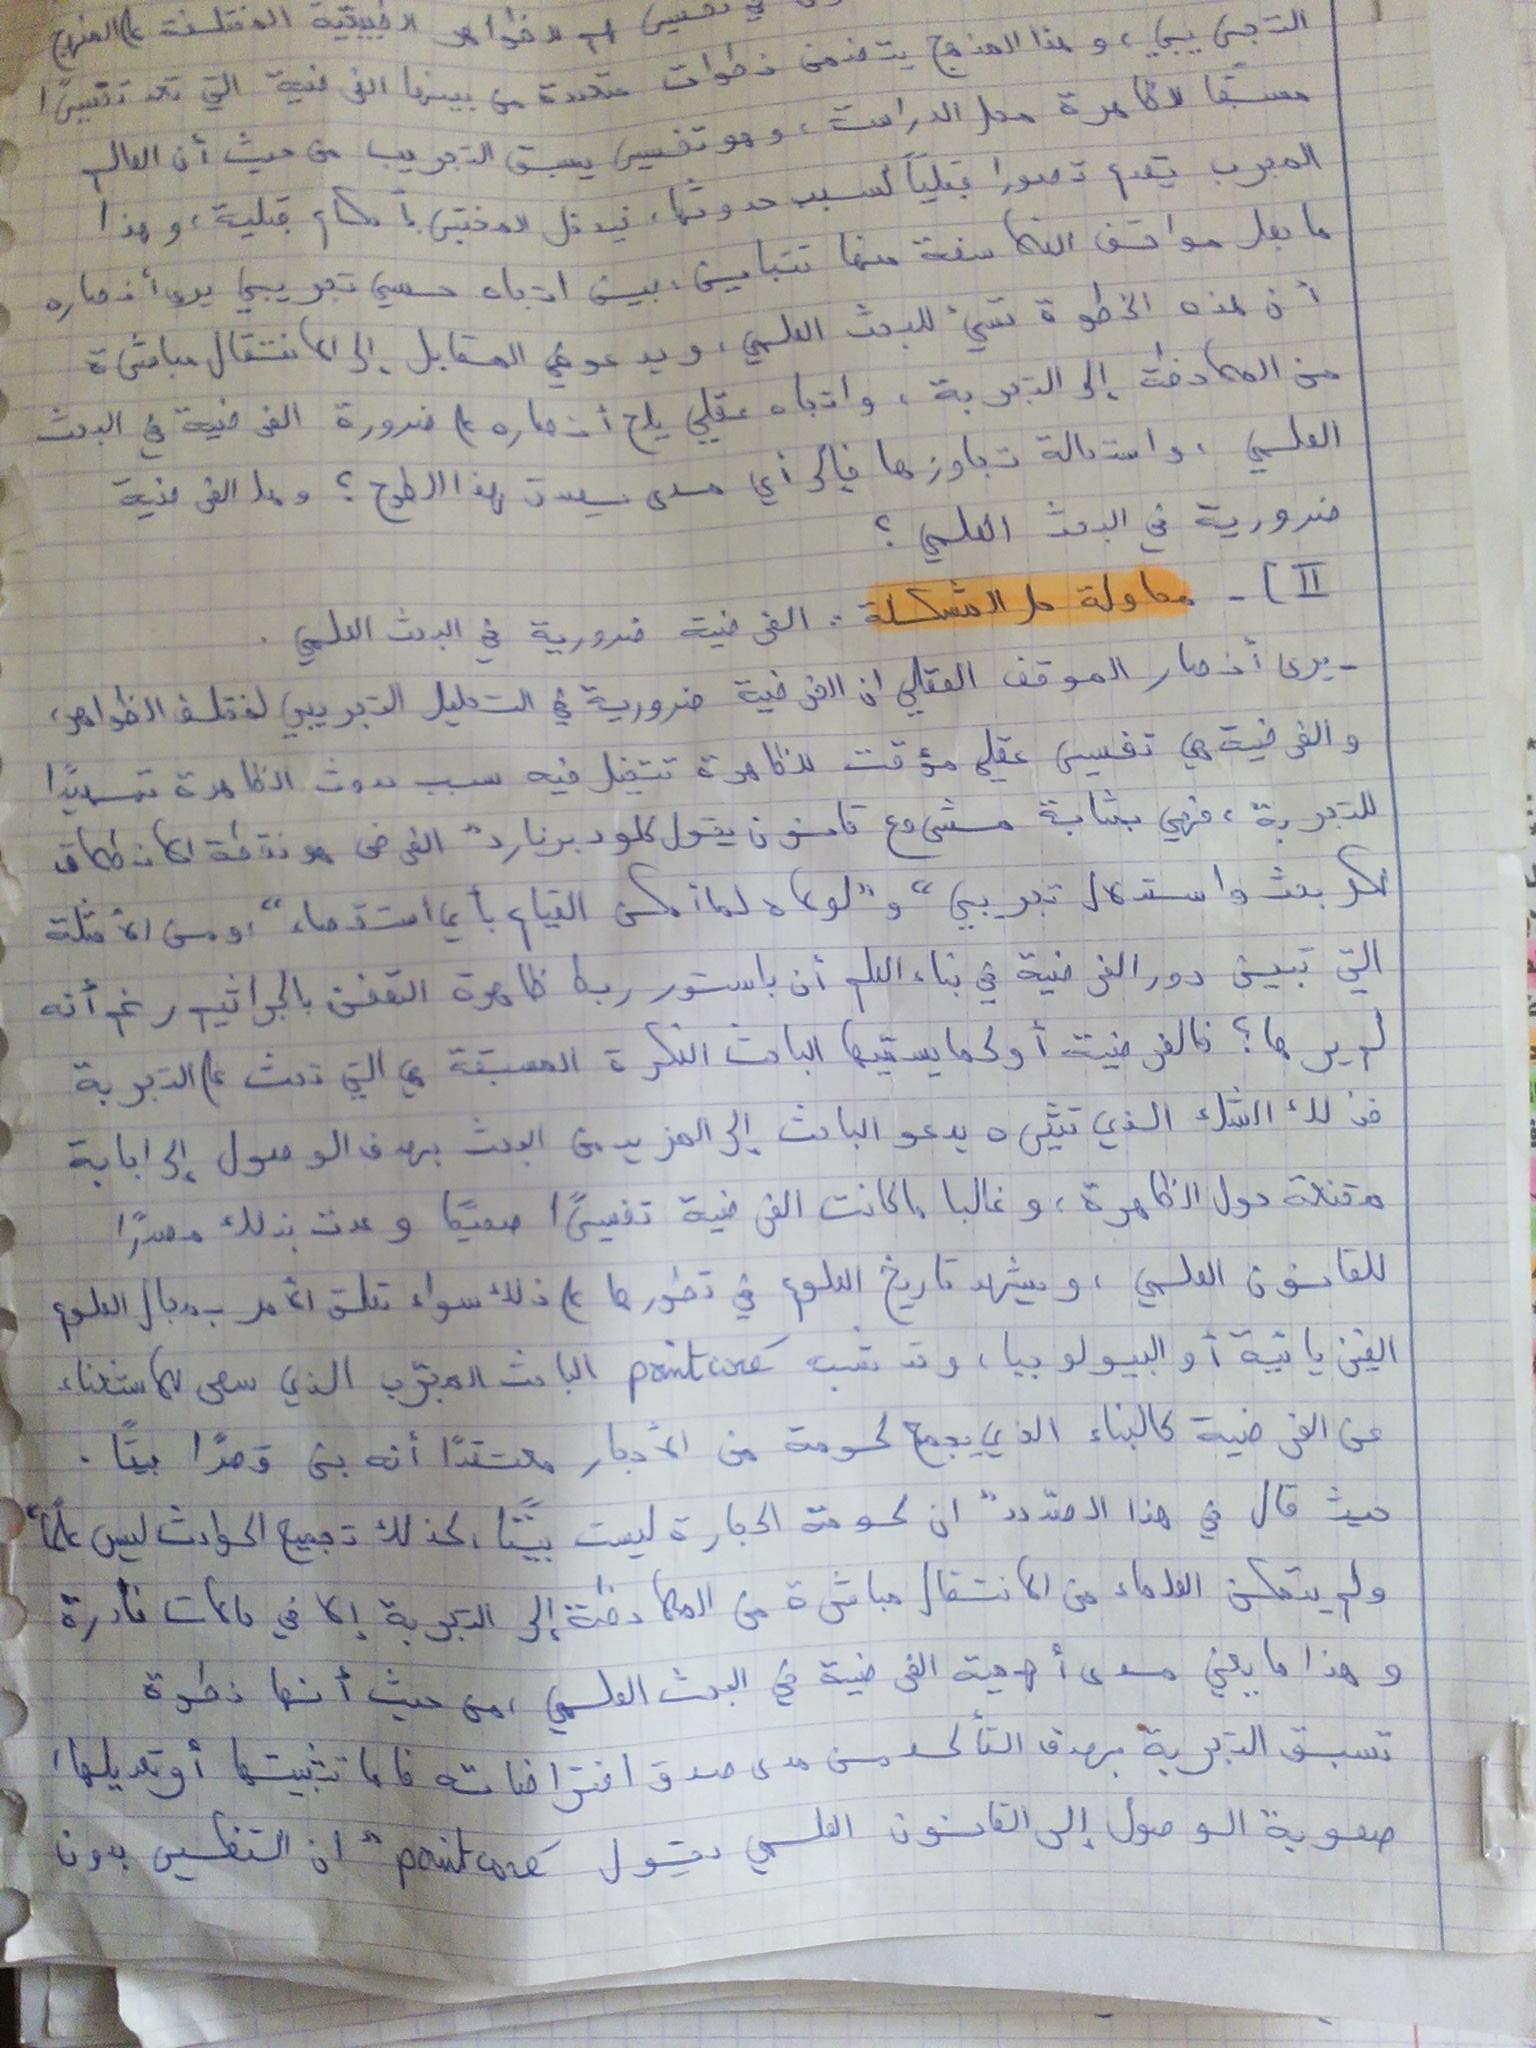 في تفسيرهم للظواهر الطبيعية المختلفة على المنهج
التجريبي، وهذا المنهج يتضمن خطوات متعددة من بينها الفرضية التي تعد تفسيرًا
مسبقا للظاهرة محل الدراسة، وهو تفسير يسبق التجريب من حيث أن العالم
المجرب يقدم تصورا قبليًا لسبب حدوثها، فيدخل المختبر بأحكام قبلية، وهذا
ما جعل مواقف الفلاسفة منها تتباين، بين اتجاه حسي تجريبي يرى أنصاره
أن هذه الخطوة تسيء للبحث العلمي، ويدعو في المقابل إلى الانتقال مباشرة
من الملاحظة إلى التجربة، واتجاه عقلي يلح أنصاره على ضرورة الفرضية في البحث
العلمي، واستحالة تجاوزها فإلى أي مدى يصدق هذا الطرح؟ وهل الفرضية
ضرورية في البحث العلمي؟
II) - محاولة حل المشكلة: الفرضية ضرورية في البحث العلمي.
- يرى أنصار الموقف العقلي ان الفرضية ضرورية في التحليل التجريبي لمختلف الظواهر،
والفرضية هي تفسير عقلي مؤقت للظاهرة تتخيل فيه سبب حدوث الظاهرة تمهيدًا
للتجربة، فهي بمثابة مشروع قانون يقول كلود برنارد "الفرض هو نقطة الانطلاق
لكل بحث واستدلال تجريبي" و"لولاه لما أمكن القيام بأي استقصاء"، ومن الأمثلة
التي تبين دور الفرضية في بناء العلم أن باستور ربط ظاهرة التعفن بالجراثيم رغم أنه
لم يرها؟ فالفرضية أو كما يسميها الباحث الفكرة المسبقة هي التي تحث على التجربة
فذلك الشك الذي تثيره يدعو الباحث إلى المزيد من البحث بهدف الوصول إلى اجابة
مقنعة حول الظاهرة، وغالبا ما كانت الفرضية تفسيرًا صحيحًا وعدت بذلك مصدرًا
للقانون العلمي، ويشهد تاريخ العلوم في تطورها على ذلك سواء تعلق الأمر بمجال العلوم
الفيزيائية أو البيولوجيا، وقد شبه pointcaré الباحث المجرّب الذي سعى للاستغناء
عن الفرضية كالبناء الذي يجمع كومة من الأحجار معتقدًا أنه بنى قصرًا بيتًا.
حيث قال في هذا الصّدد "ان كومة الحجارة ليست بيتًا، كذلك تجميع الحوادث ليس علمًا"
ولم يتمكن العلماء من الانتقال مباشرة من الملاحظة إلى التجربة إلا في حالات نادرة
وهذا ما يعني مدى أهمية الفرضية في البحث العلمي، من حيث أنها خطوة
تسبق التجربة بهدف التأكد من مدى صدق افتراضاته فإما تثبيتها أو تعديلها،
صعوبة الوصول إلى القانون العلمي يقول pointcaré "ان التفسير بدون